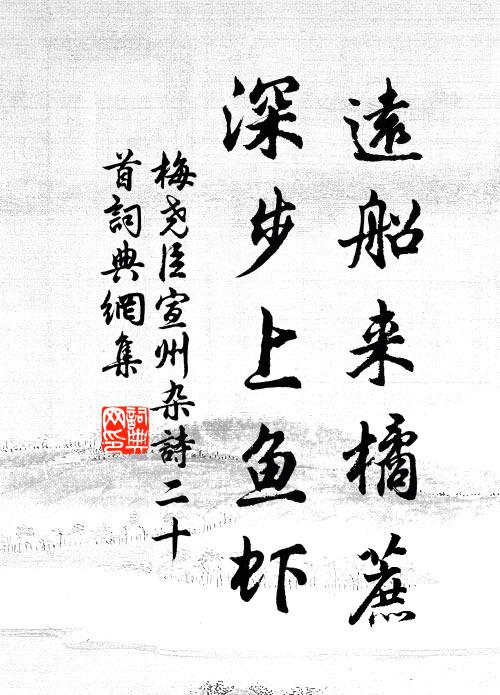 遠船来橘蔗
深步上鱼虾
梅尧臣宣州杂詩二十
首詞典網集
詞典
网印